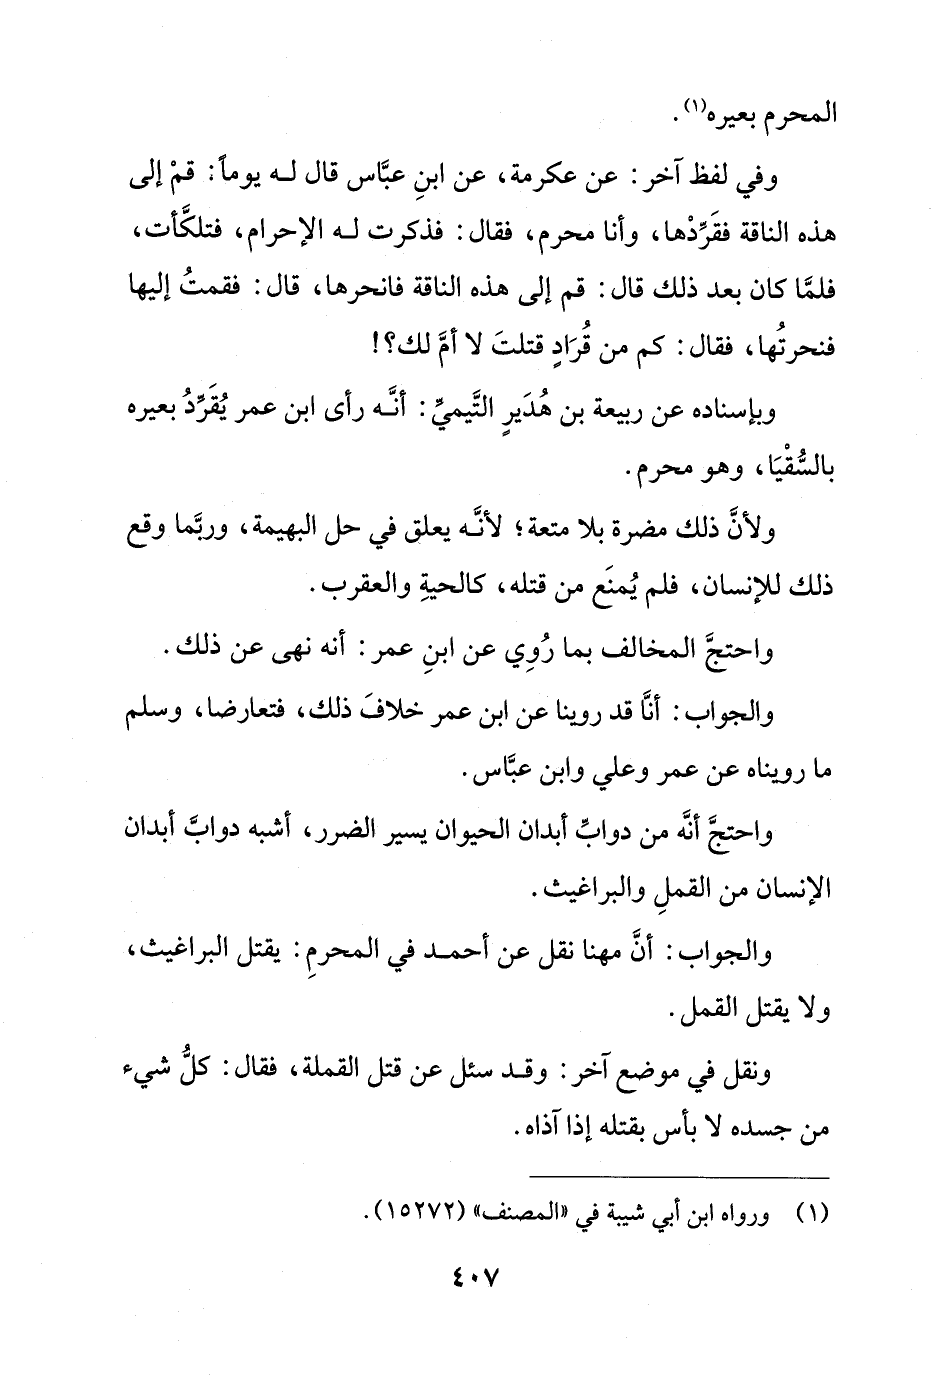 المحرم بعيره(١).
وفي لفظ آخر: عن عكرمة، عن ابنِ عبَّاس قال لـه يوماً: قمْ إلى
هذه الناقة فقَرِّدْها، وأنا محرم، فقال: فذكرت لـه الإحرام، فتلكَّأت،
فلمَّا كان بعد ذلك قال: قم إلى هذه الناقة فانحرها، قال: فقمتُ إليها
فنحرتُها، فقال: كم من قُرَادٍ قتلتَ لا أمَّ لك؟!
وبإسناده عن ربيعة بن هُدَيرٍ التَّيميِّ: أنَّـه رأى ابن عمر يُقَرِّدُ بعيره
بالسُّقْيَا، وهو محرم.
ولأنَّ ذلك مضرة بلا متعة؛ لأنَّـه يعلق في حل البهيمة، وربَّما وقع
ذلك للإنسان، فلم يُمنَع من قتله، كالحيةِ والعقرب.
واحتجَّ المخالف بما رُوِي عن ابنِ عمر: أنه نهى عن ذلك.
والجواب: أنَّا قد روينا عن ابن عمر خلافَ ذلك، فتعارضا، وسلم
ما رويناه عن عمر وعلي وابن عبَّاس.
واحتجَّ أنَّه من دوابِّ أبدان الحيوان يسير الضرر، أشبه دوابَّ أبدان
الإنسان من القملِ والبراغيث.
والجواب: أنَّ مهنا نقل عن أحمـد في المحرمِ: يقتل البراغيث،
ولا يقتل القمل.
ونقل في موضع آخر: وقـد سئل عن قتل القملة، فقال: كلُّ شيء
من جسده لا بأس بقتله إذا آذاه.
(١) ورواه ابن أبي شيبة في «المصنف» (١٥٢٧٢).
٤٠٧